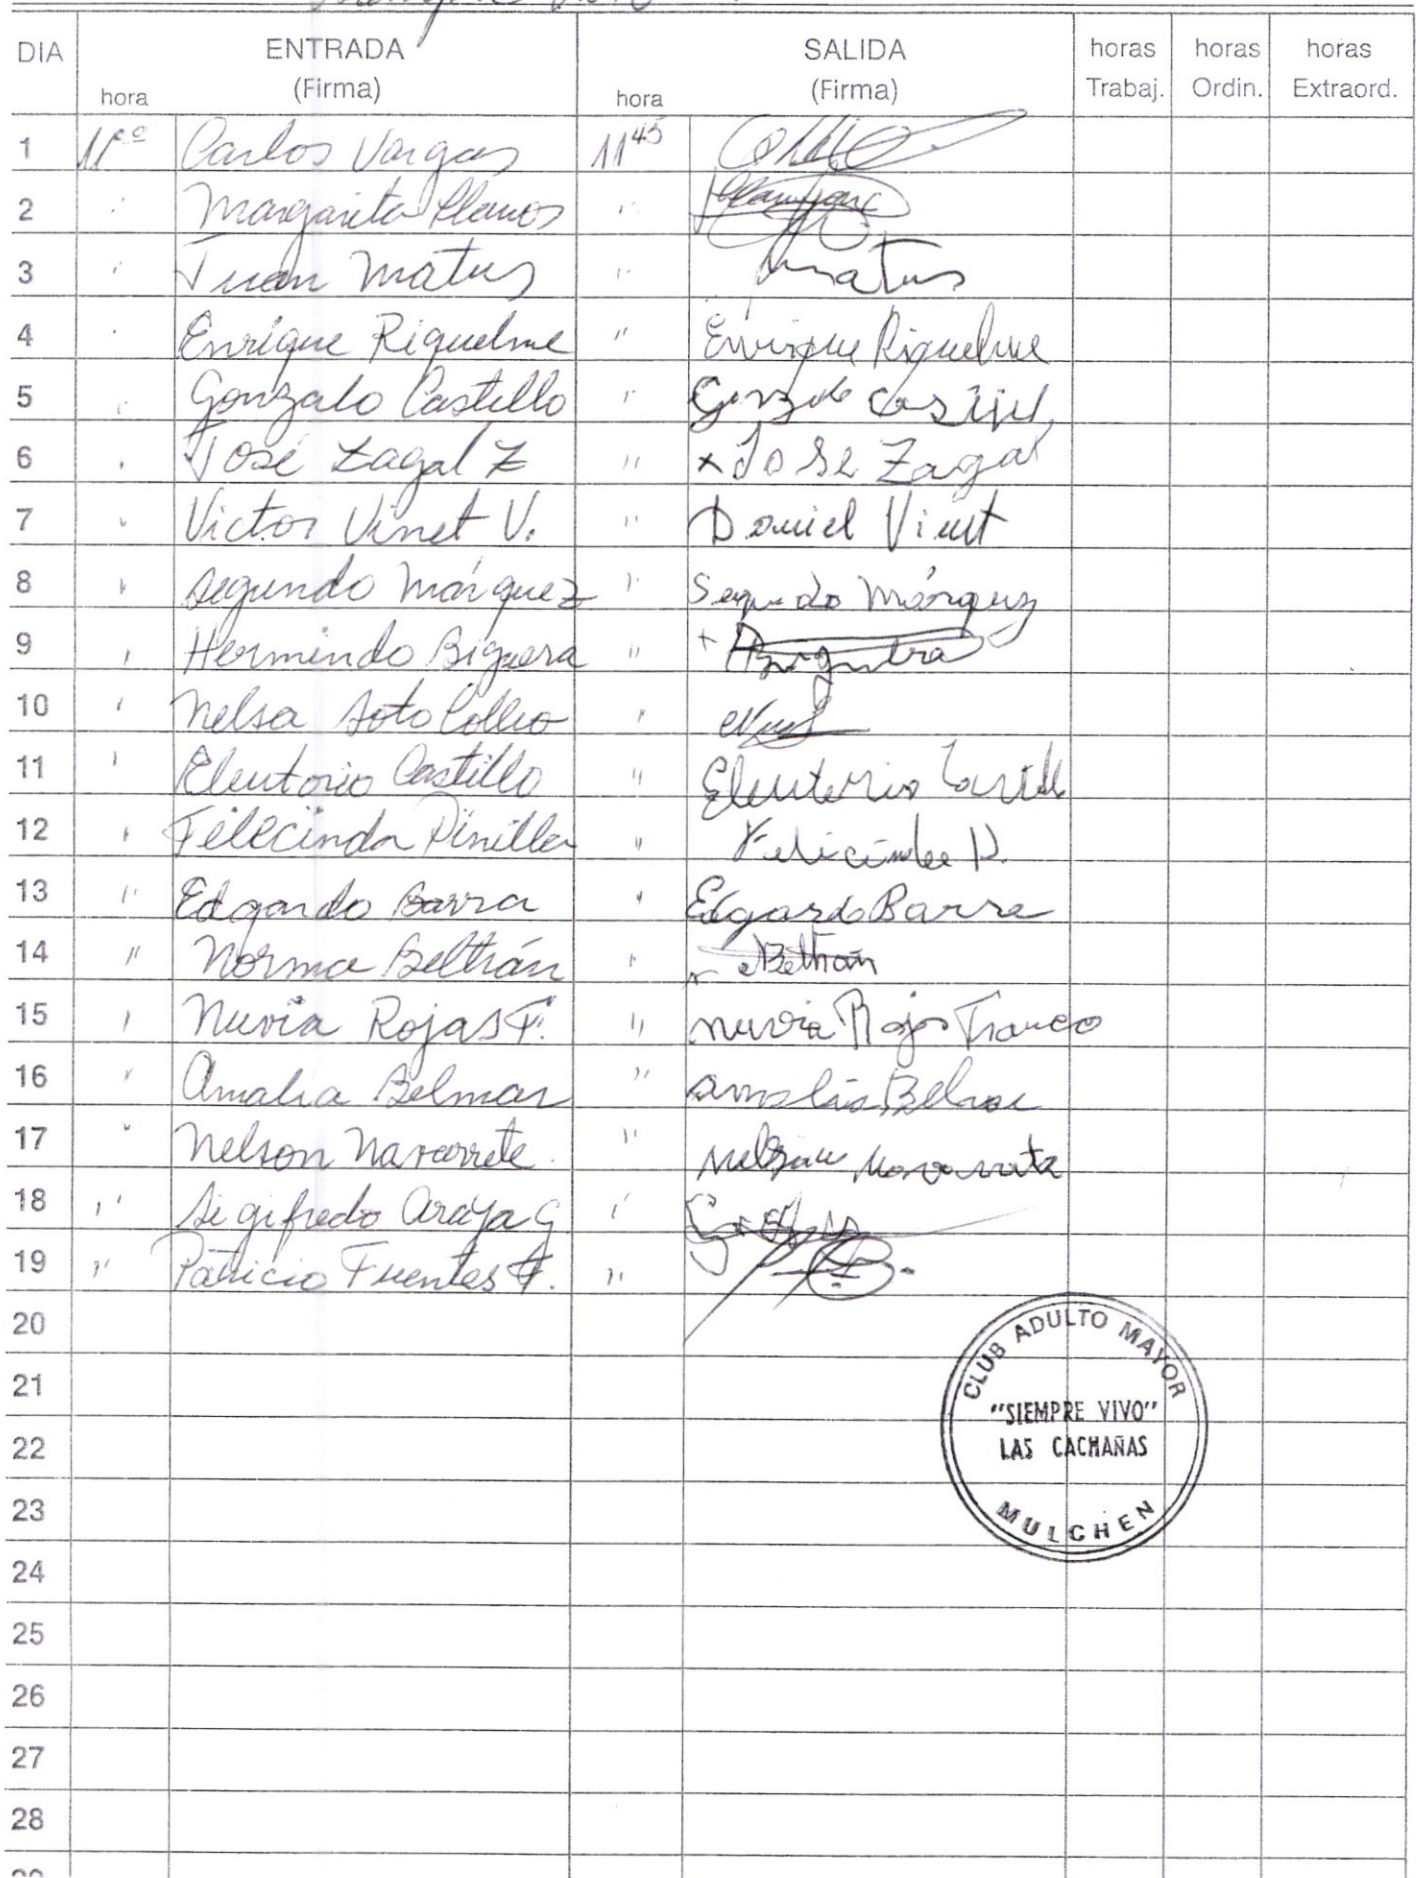 DIA ENTRADA SALIDA horas horas horas
hora (Firma) hora (Firma) Trabaj. Ordin. Extraord.
1 11:00 Carlos Vargas 11:45
2 " Margarita Llanos "
3 " Juan Matus " Matus
4 " Enrique Riquelme " Enrique Riquelme
5 " Gonzalo Castillo "
6 " José Zagal Z " x Jose Zagal
7 " Victor Vinet V. " Daniel Vinet
8 " Segundo Márquez " Segundo Márquez
9 " Hermindo Biguera " +
10 " Nelsa Soto Collio "
11 " Eleutorio Castillo " Eleuterio
12 " Filicinda Pinilla " Felicinda P.
13 " Edgardo Barra " Edgardo Barra
14 " Norma Beltrán " Beltrán
15 " Nuvia Rojas F. " Nuvia Rojas Franco
16 " Amalia Belmar " Amalia Belmar
17 " Nelson Navarrete. " Nelson Navarrete
18 " Sigifredo Araya G "
19 " Patricio Fuentes F. "
20
CLUB ADULTO MAYOR
21
"SIEMPRE VIVO"
22 LAS CACHAÑAS
23
MULCHEN
24
25
26
27
28